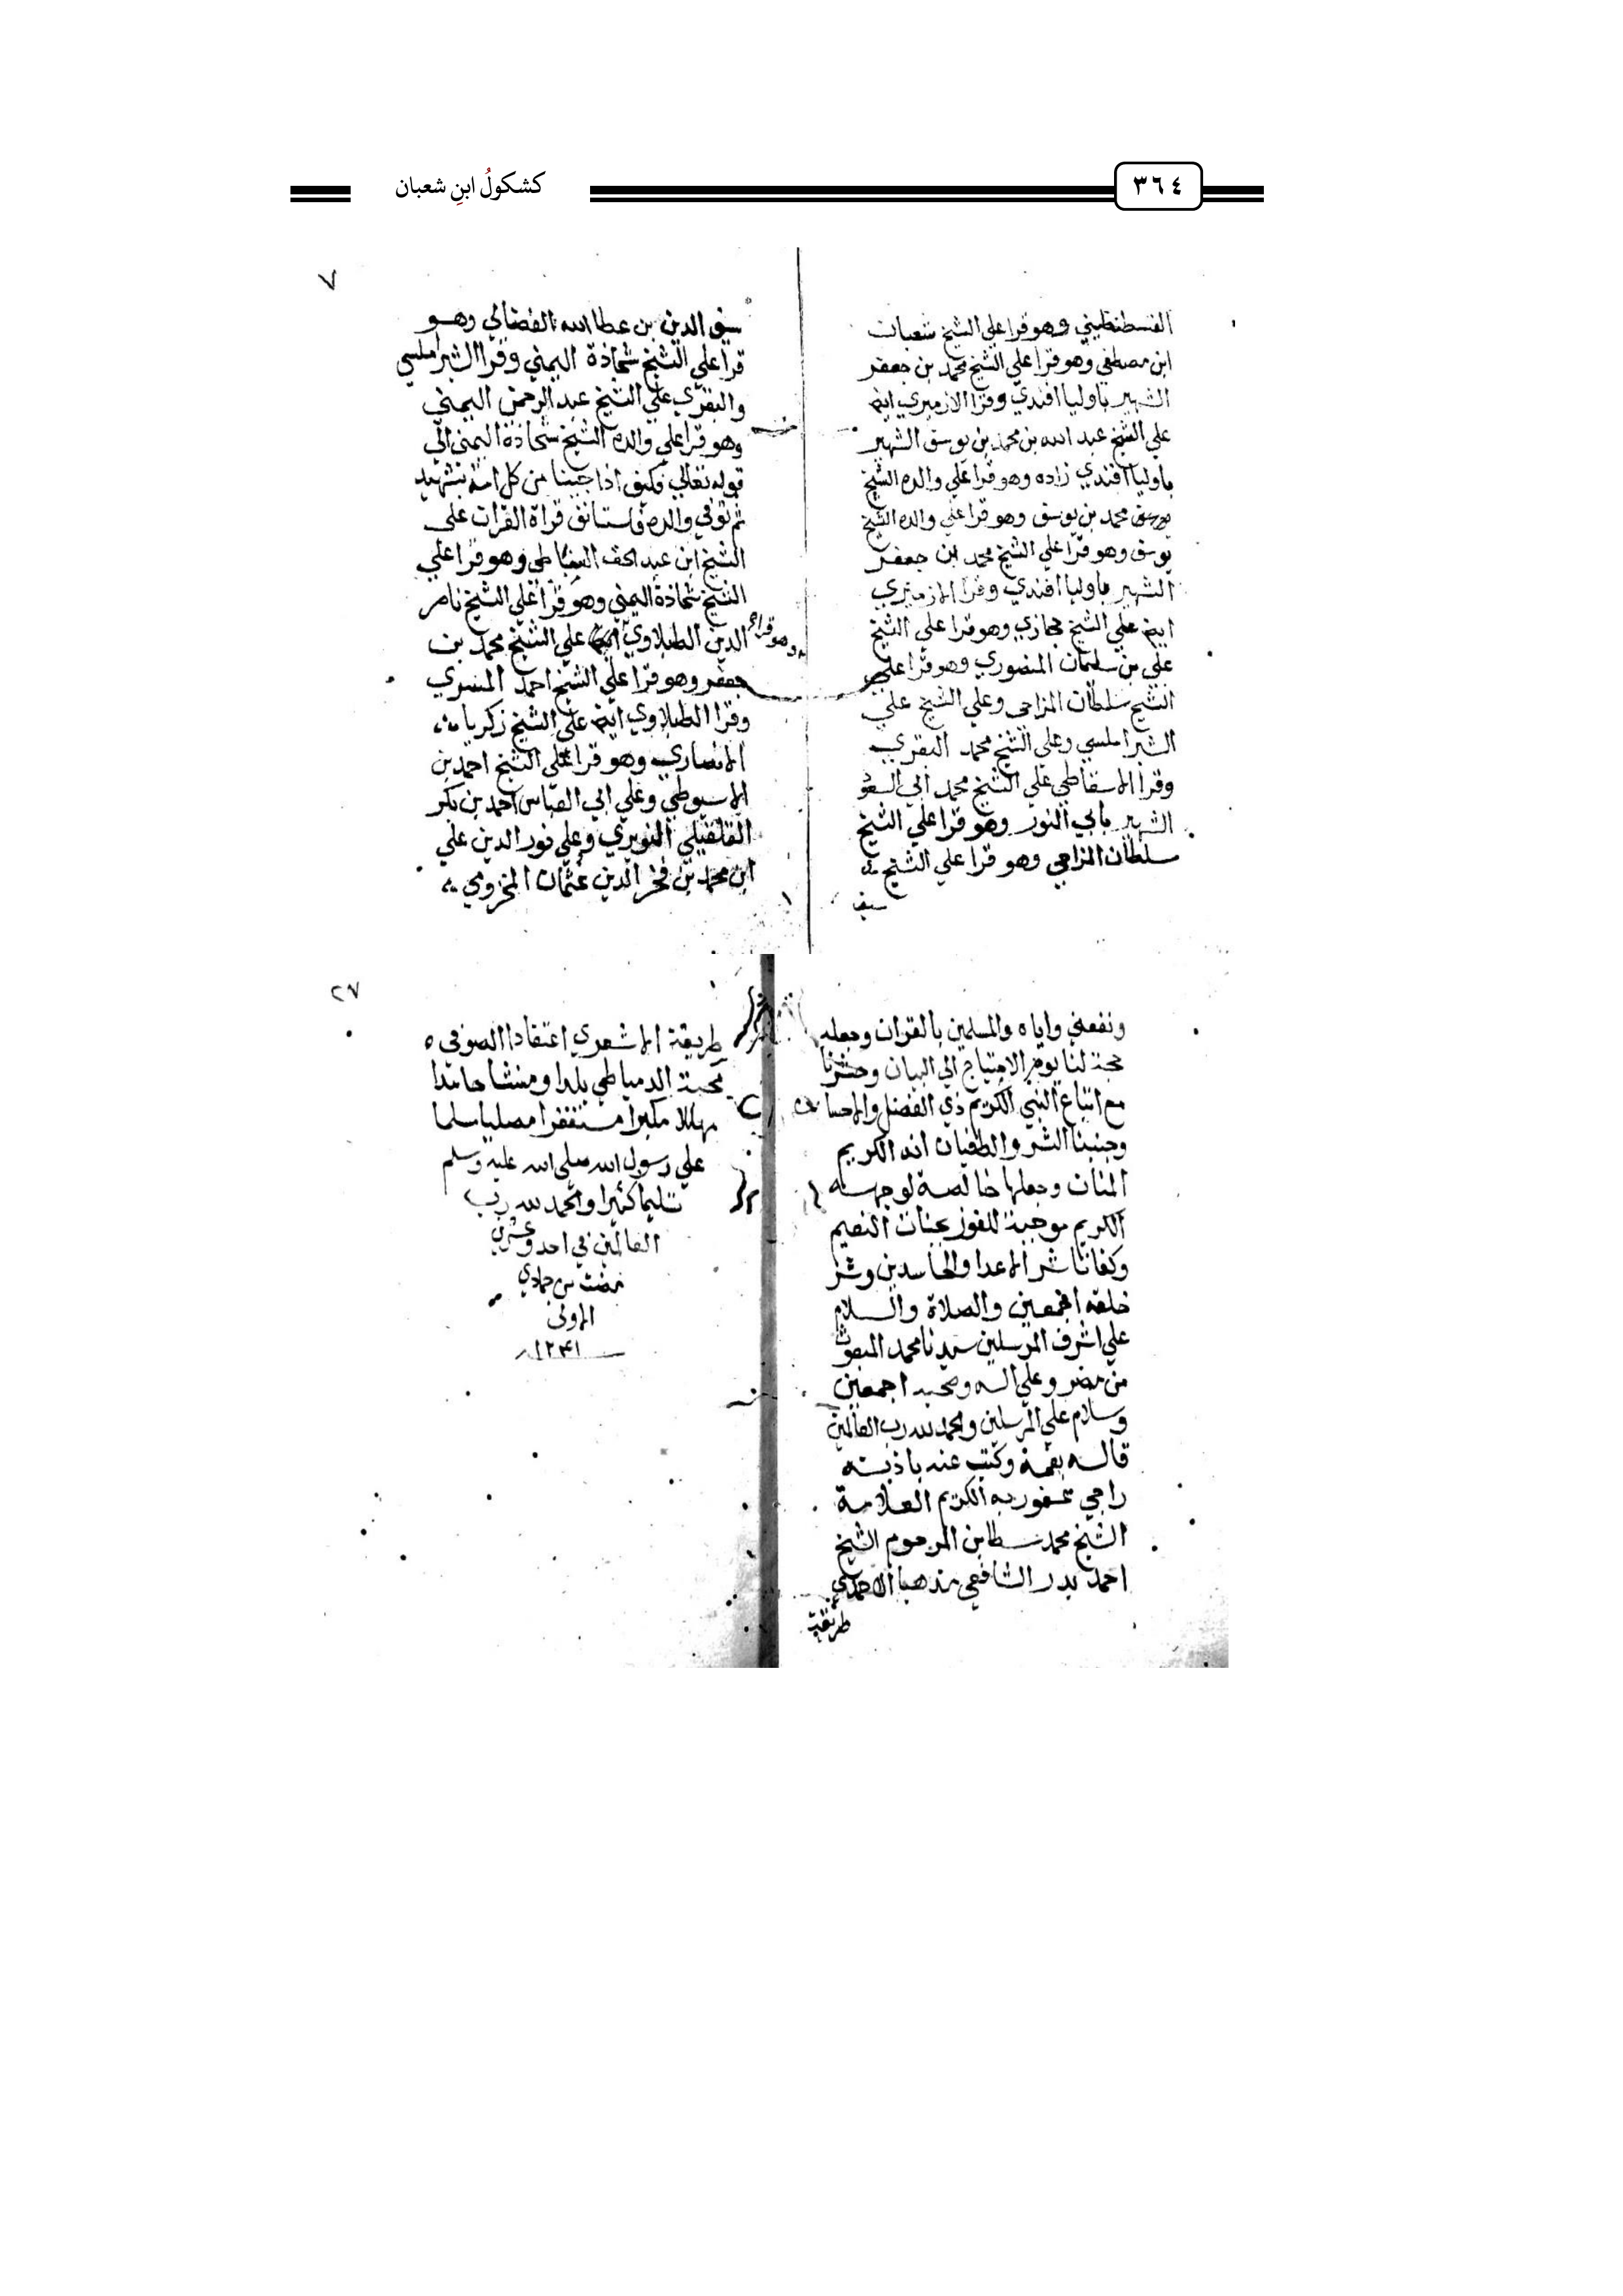 ٣٦٤
كشكولُ ابنِ شعبان
القسطنطيني وهو قرا علي الشيخ شعبان
ابن مصطفي وهو قرا علي الشيخ محمد بن جعفر
الشهير باوليا افندي وقرا الازميري ايض
علي الشيخ عبد الله بن محمد بن يوسف الشهير
باوليا افندي زاده وهو قرا علي والده الشيخ
يوسف محمد بن يوسف وهو قرا علي والده الشيخ
يوسف وهو قرا علي الشيخ محمد ابن جعفر
الشهير باوليا افندي وقرا الازميري
ايض علي الشيخ حجازي وهو قرا علي الشيخ
علي بن سليمان المنصوري وهو قرا علي
الشيخ سلطان المزاحي وعلي الشيخ علي
الشبراملسي وعلي الشيخ محمد البقري
وقرا الاسقاطي علي الشيخ محمد ابي السعو
الشهير بابي النور وهو قرا علي الشيخ
سلطان المزاحي وهو قرا علي الشيخ
سيف
٧
سيف الدين بن عطا الله الفضالي وهو
قرا علي الشيخ شحاذة اليمني وقرا الشبراملسي
والبقري علي الشيخ عبد الرحمن اليمني
وهو قرا علي والده الشيخ شحاذة اليمني الي
قوله تعالي فكيف اذا جينا من كل امة بشهيد
ثم توفي والده فاستانف قراة القران علي
الشيخ ابن عبد الحق السنباطي وهو قرا علي
الشيخ شحاذة اليمني وهو قرا علي الشيخ ناصر
الدين الطبلاوي علي الشيخ محمد بن
وهو قرا
جعفر وهو قرا علي الشيخ احمد المنصوري
وقرا الطبلاوي ايض علي الشيخ زكريا
الانصاري وهو قرا علي الشيخ احمد بن
الاسيوطي وعلي ابي العباس احمد بن بكر
القلقيلي النويري وعلي نور الدين علي
ابن محمد بن فخر الدين عثمان المخزومي
ونفعني واياه والمسلمين بالقران وجعله
حجة لنا يوم الاحتياج الي البيان وحشرنا
مع اتباع النبي الكريم ذي الفضل والاحسان
وجنبنا الشر والطغيان انه الكريم
المنان وجعلها خالصة لوجهه
الكريم موجبة للفوز بجنات النعيم
وكفانا شر الاعدا والحاسدين وشر
خلقه اجمعين والصلاة والسلام
علي اشرف المرسلين سيدنا محمد المبعوث
من مضر وعلي اله وصحبه اجمعين
وسلام علي المرسلين والحمد لله رب العالمين
قاله بفمه وكتب عنه باذنه
راجي عفو ربه الكريم العلامة
الشيخ محمد سطا بن المرحوم الشيخ
احمد بدر الشافعي مذهبا الاحمدي
طريقة
٢٧
طريقة الاشعري اعتقادا الصوفي
محبة الدمياطي بلدا ومنشا حامدا
مهللا مكبرا مستغفرا مصليا مسلما
علي رسول الله صلى الله عليه وسلم
تسليما كثيرا والحمد لله رب
العالمين في احد وعشرين
مضت من جمادي
الاولى
١٢٤١